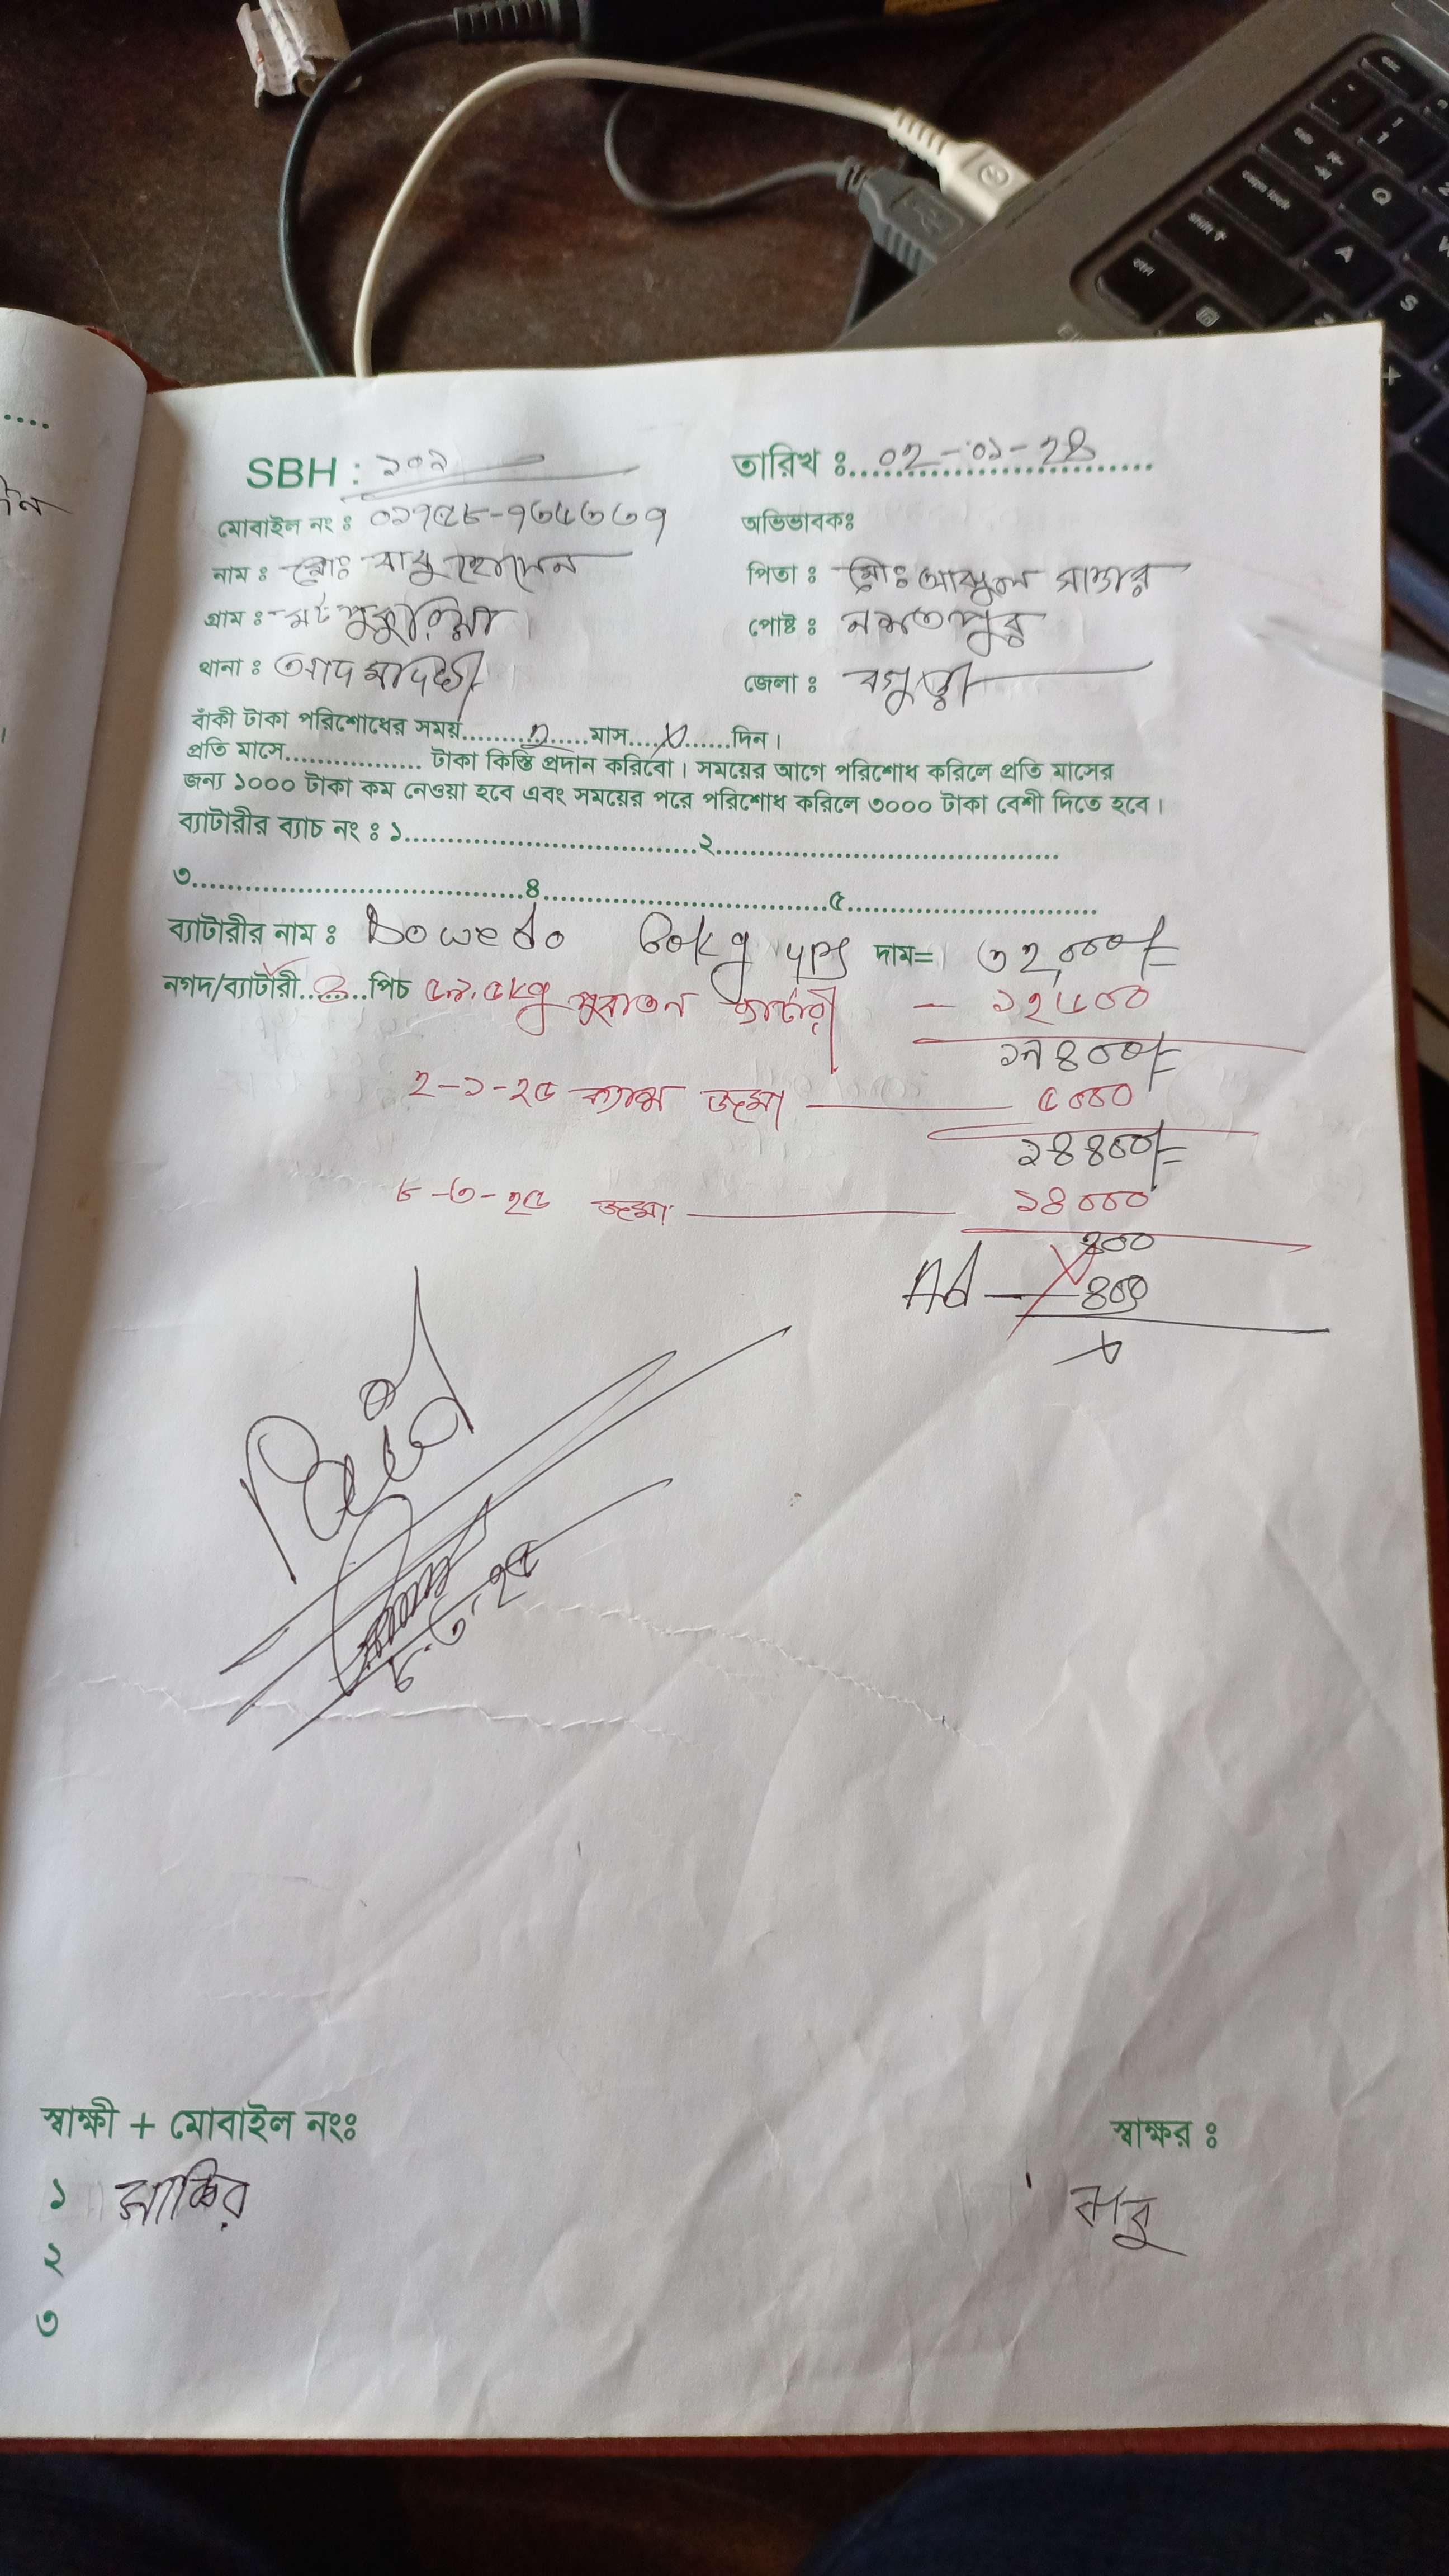 SBH : ১০৯ তারিখ ঃ 02-০১-২৪
মোবাইল নং ঃ ০১৭৫৮-৭৩৫৩৩৭ অভিভাবকঃ
নাম ঃ মোঃ বাবু হোসেন পিতা ঃ মোঃ আব্দুল সাত্তার
গ্রাম ঃ পুকুরিয়া পোষ্ট ঃ নসরতপুর
থানা ঃ আদমদিঘী জেলা ঃ বগুড়া
বাঁকী টাকা পরিশোধের সময়..........২.....মাস....X......দিন।
প্রতি মাসে.................. টাকা কিস্তি প্রদান করিবো। সময়ের আগে পরিশোধ করিলে প্রতি মাসের
জন্য ১০০০ টাকা কম নেওয়া হবে এবং সময়ের পরে পরিশোধ করিলে ৩০০০ টাকা বেশী দিতে হবে।
ব্যাটারীর ব্যাচ নং ঃ ১........................................২..............................................
৩..............................................৪........................................৫..................................
ব্যাটারীর নাম ঃ Dowedo 60kg 4ps দাম= ৩২,০০০/=
নগদ/ব্যাটারী.........পিচ ৫৯.৫kg পুরাতন ব্যাটারী - ১২৫০০
১৯৪০০/=
২-১-২৫ ক্যাশ জমা ৫০০০
১৪৪০০/=
৮-৩-২৫ জমা ১৪০০০
৪০০
Ad ৪০০
x
Paid
৮-৩-২৫
স্বাক্ষী + মোবাইল নংঃ স্বাক্ষর ঃ
১ সাব্বির বাবু
২
৩